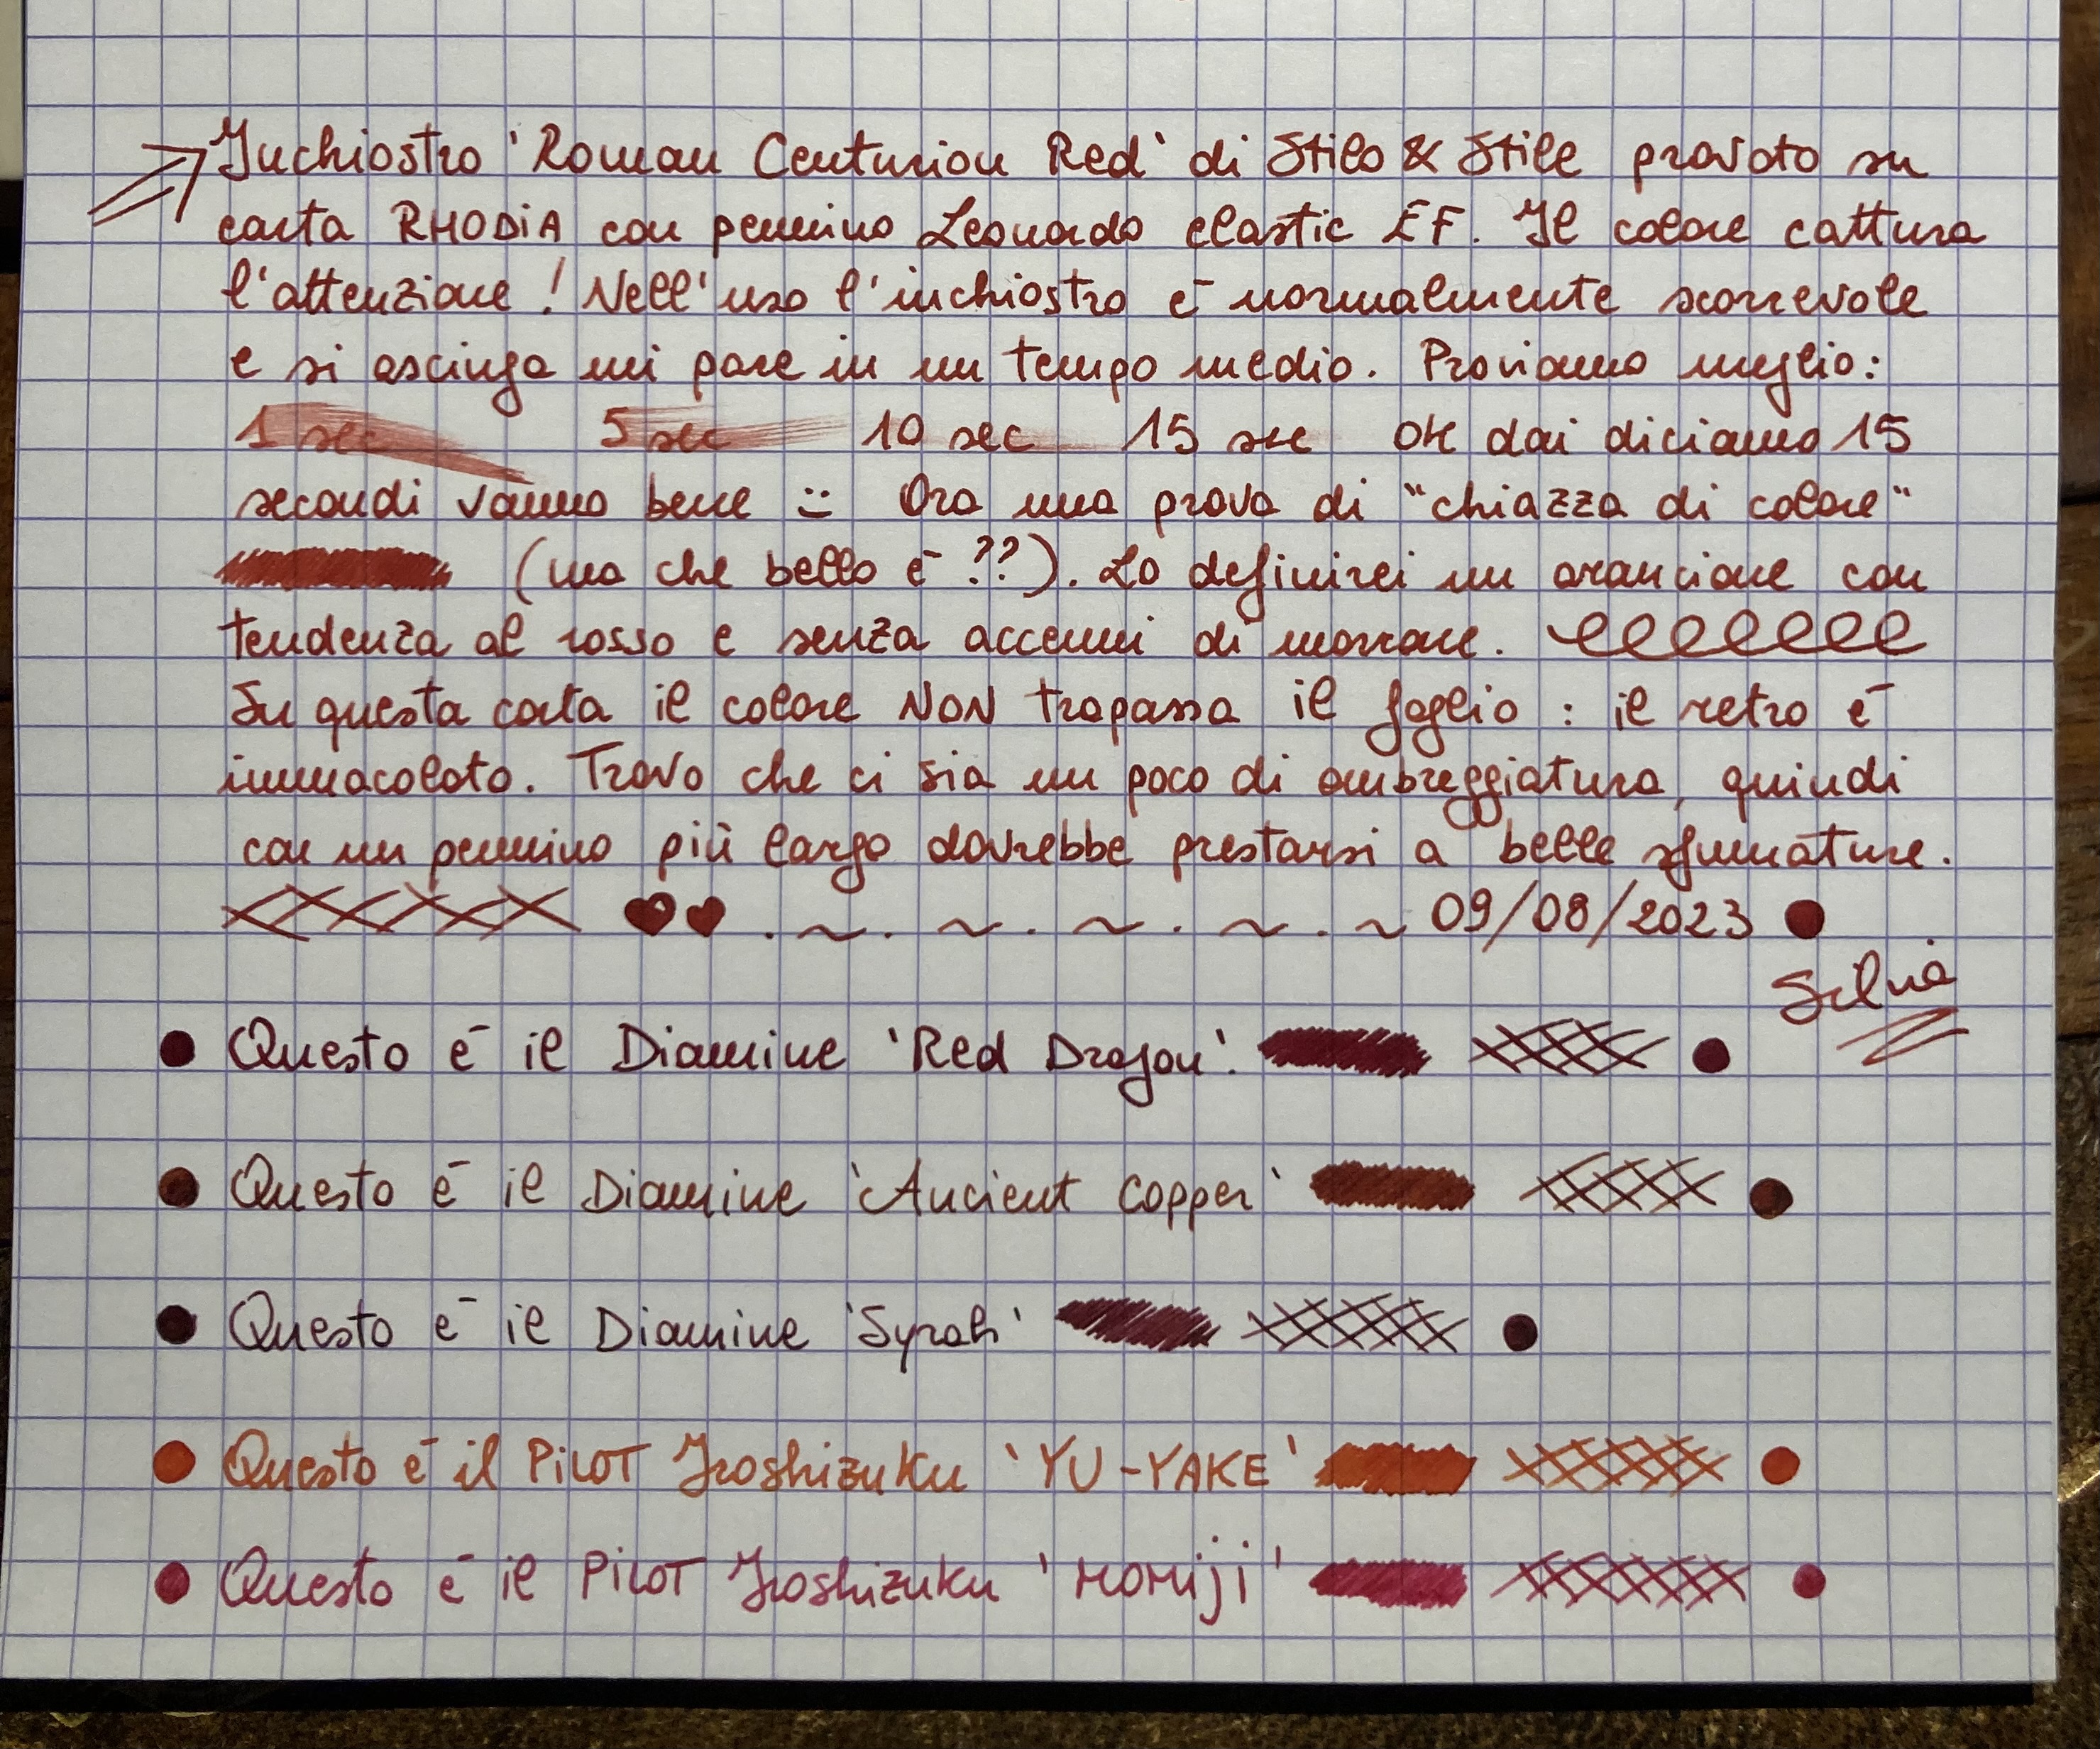 Inchiostro 'Roman Centurion Red' di Stilo & Stile provato su
carta RHODIA con pennino Leonardo elastic EF. Il colore cattura
l'attenzione! Nell'uso l'inchiostro è normalmente scorrevole
e si asciuga mi pare in un tempo medio. Proviamo meglio:
1 sec 5 sec 10 sec 15 sec OK dai diciamo 15
secondi vanno bene :) Ora una prova di "chiazza di colore"
(ma che bello è ??). Lo definirei un arancione con
tendenza al rosso e senza accenni di marrone.
Su questa carta il colore NON trapassa il foglio: il retro è
immacolato. Trovo che ci sia un poco di ombreggiatura, quindi
con un pennino più largo dovrebbe prestarsi a belle sfumature.
09/08/2023
Silvia
Questo è il Diamine 'Red Dragon'.
Questo è il Diamine 'Ancient Copper'
Questo è il Diamine 'Syrah'
Questo è il PILOT Iroshizuku 'YU-YAKE'
Questo è il PILOT Iroshizuku 'MOMIJI'